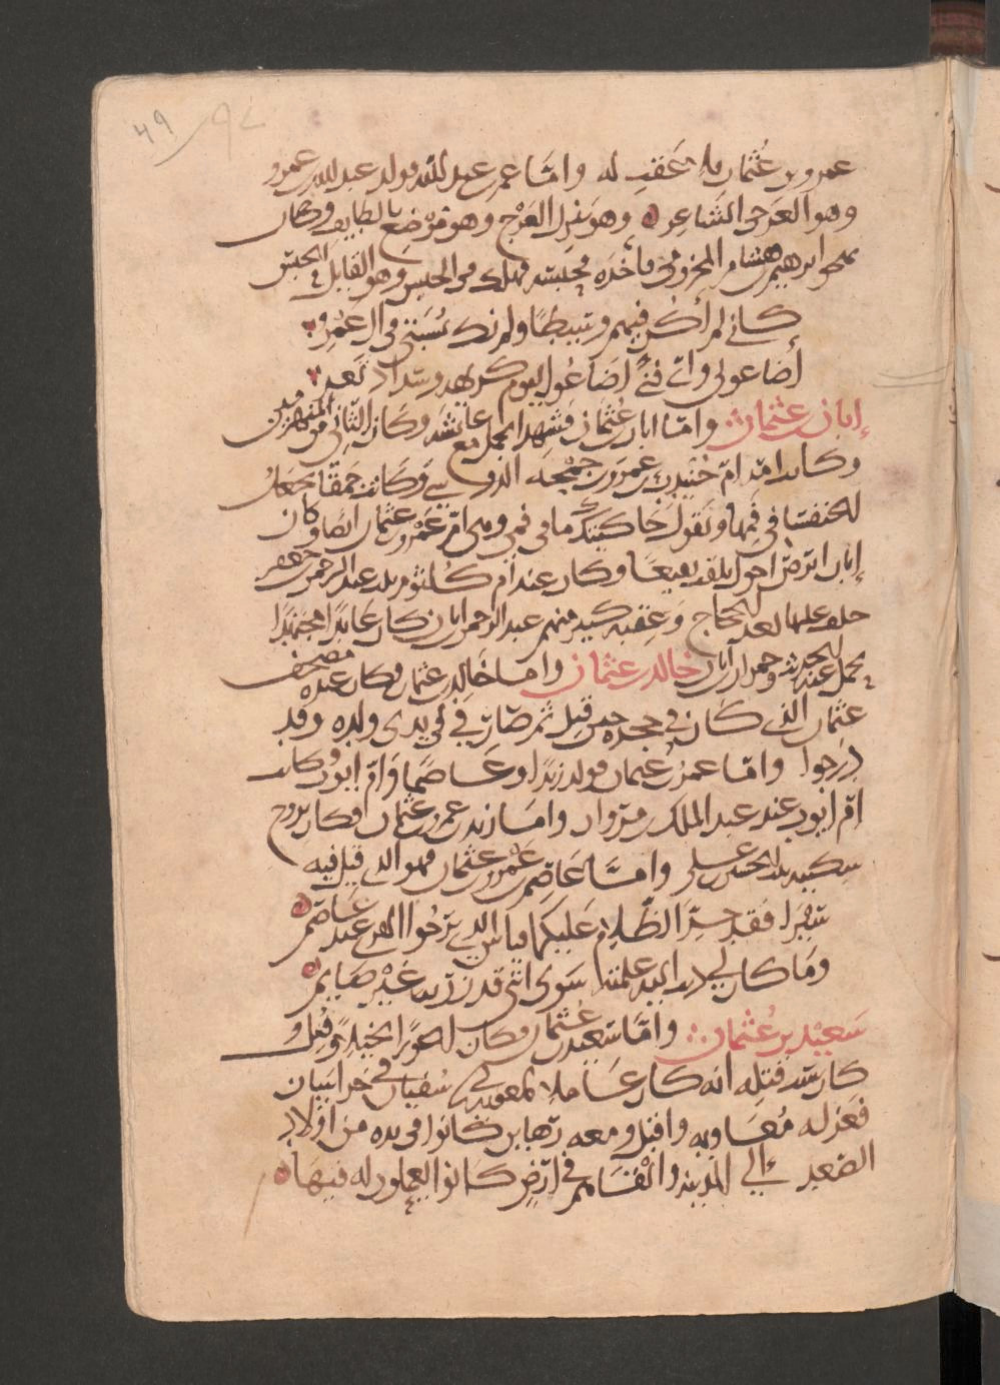 ٤٩ ٩٧
عمرو بن عثمان فلا عقب له واما عمر بن عبد الله فولد عبد الله بن عمرو
وهو العرجي الشاعر وهو ينزل العرج وهو موضع بالطايف وكان
ابرهيم بن هشام المخزومي فاخذه فحبسه فهلك في الحبس وهو القايل في الحبس
كاني لم اكن فيهم وسيطا ولم تك نسبتي في ال عمرو
أضاعوني واي فتى أضاعوا ليوم كريهه وسداد ثغر
إبان بن عثمان واما ابان بن عثمان فشهد الجمل مع عايشه وكان الثاني من المنهزمين
وكانت امه ام بنت جندب بن عمرو بن حممه الدوسي وكانت حمقا تجعل
الخنفسا في فمها وتقول حاجيتك ما في فمي وهي ام عمرو بن عثمان ايضا وكان
إبان ابرص احول يلقب بقيعا وكان عنده ام كلثوم بنت عبد الله بن جعفر
خلف عليها بعد الحجاج وعقبه كثير منهم عبد الرحمن بن ابان كان عابدا مجتهدا
يحمل عنه الحديث وحمران بن ابان خالد بن عثمان واما خالد بن عثمان فكان عنده مصحف
عثمان الذي كان في حجره حين قتل ثم صار في ايدي ولده وقد
درجوا واما عمر بن عثمان فولد زيدا وعاصما وام ايوب وكانت
ام ايوب عند عبد الملك بن مروان واما زيد بن عمرو بن عثمان فكان تزوج
سكينه بنت الحسين بن علي واما عاصم بن عمرو بن عثمان فهو الذي قيل فيه
سيرا فقد جن الظلام عليكما فباس الذي يرجوا القرى عند عاصم
وما كان لي ذنب اليه علمته سوى انني قد زرته غير صايم
سعيد بن عثمان واما سعيد بن عثمان فكان اعور بخيلا وقتل و
كان سبب قتله انه كان عاملا لمعويه بن ابي سفيان على خراسان
فعزله معاويه واقبل ومعه رهاين كانوا في يده من اولاد
الصغد الي المدينه والقاهم في ارض كانوا يعملون له فيها